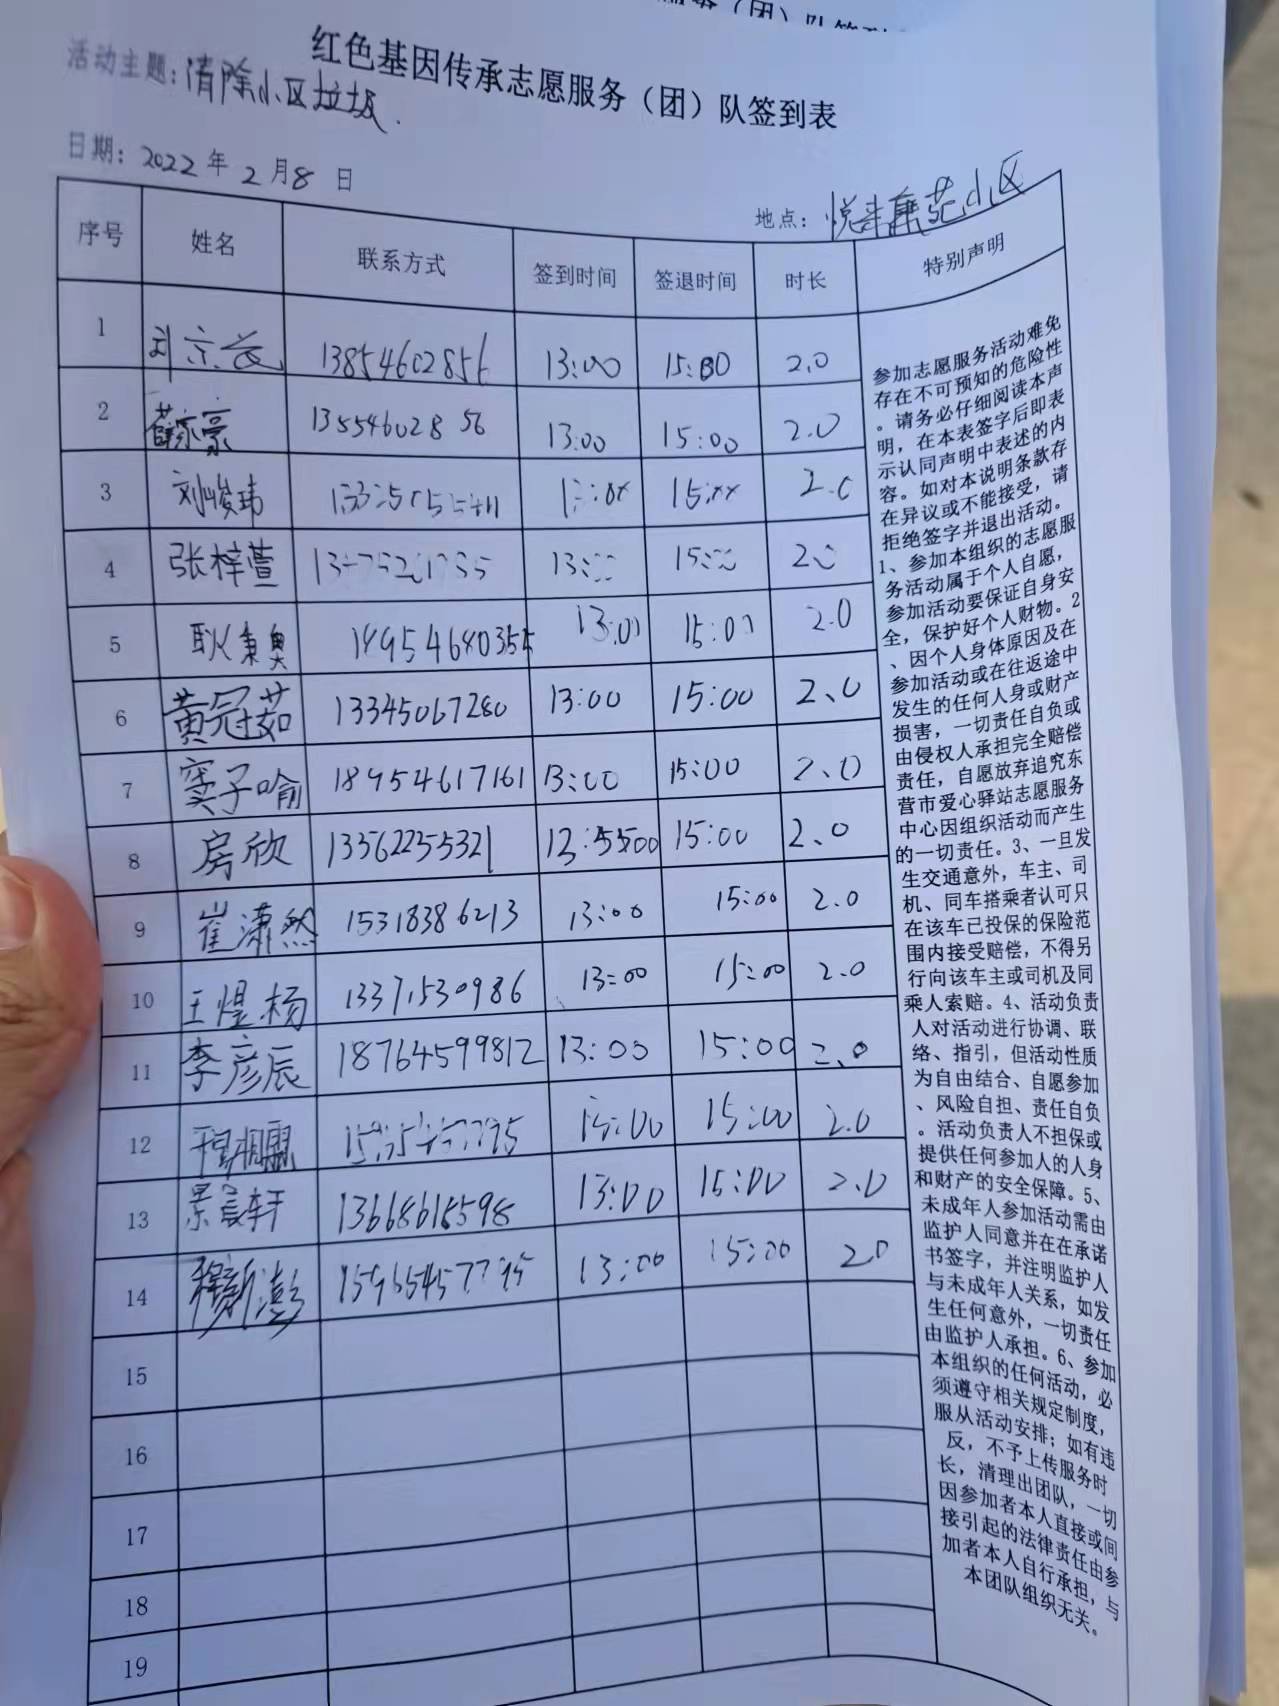 红色基因传承志愿服务（团）队签到表
活动主题：清除小区垃圾.
日期：2022年2月8日
地点：悦来康苑小区
序号 姓名 联系方式 签到时间 签退时间 时长 特别声明
1 13854602856 13:00 15:00 2.0
2 薛亦豪 13554602856 13:00 15:00 2.0
3 刘俊玮 2.0
4 张梓萱 2.0
5 耿秉奥 15:01 2.0
6 黄冠茹 13345067280 13:00 15:00 2.0
7 窦子喻 18954617161 13:00 15:00 2.0
8 房欣 13562255321 15:00 2.0
9 崔潇然 15318386213 13:00 15:00 2.0
10 王煜杨 13371530986 13:00 15:00 2.0
11 李彦辰 18764599812 13:00 15:00 2.0
12 15:00 2.0
13 景晨轩 13:00 15:00 2.0
14 13:00 15:00 2.0
15
16
17
18
19
参加志愿服务活动难免
存在不可预知的危险性
。请务必仔细阅读本声
明，在本表签字后即表
示认同声明中表述的内
容。如对本说明条款存
在异议或不能接受，请
拒绝签字并退出活动。
1、参加本组织的志愿服
务活动属于个人自愿，
参加活动要保证自身安
全，保护好个人财物。2
、因个人身体原因及在
参加活动或在往返途中
发生的任何人身或财产
损害，一切责任自负或
由侵权人承担完全赔偿
责任，自愿放弃追究东
营市爱心驿站志愿服务
中心因组织活动而产生
的一切责任。3、一旦发
生交通意外，车主、司
机、同车搭乘者认可只
在该车已投保的保险范
围内接受赔偿，不得另
行向该车主或司机及同
乘人索赔。4、活动负责
人对活动进行协调、联
络、指引，但活动性质
为自由结合、自愿参加
、风险自担、责任自负
。活动负责人不担保或
提供任何参加人的人身
和财产的安全保障。5、
未成年人参加活动需由
监护人同意并在在承诺
书签字，并注明监护人
与未成年人关系，如发
生任何意外，一切责任
由监护人承担。6、参加
本组织的任何活动，必
须遵守相关规定制度，
服从活动安排；如有违
反，不予上传服务时
长，清理出团队，一切
因参加者本人直接或间
接引起的法律责任由参
加者本人自行承担，与
本团队组织无关。